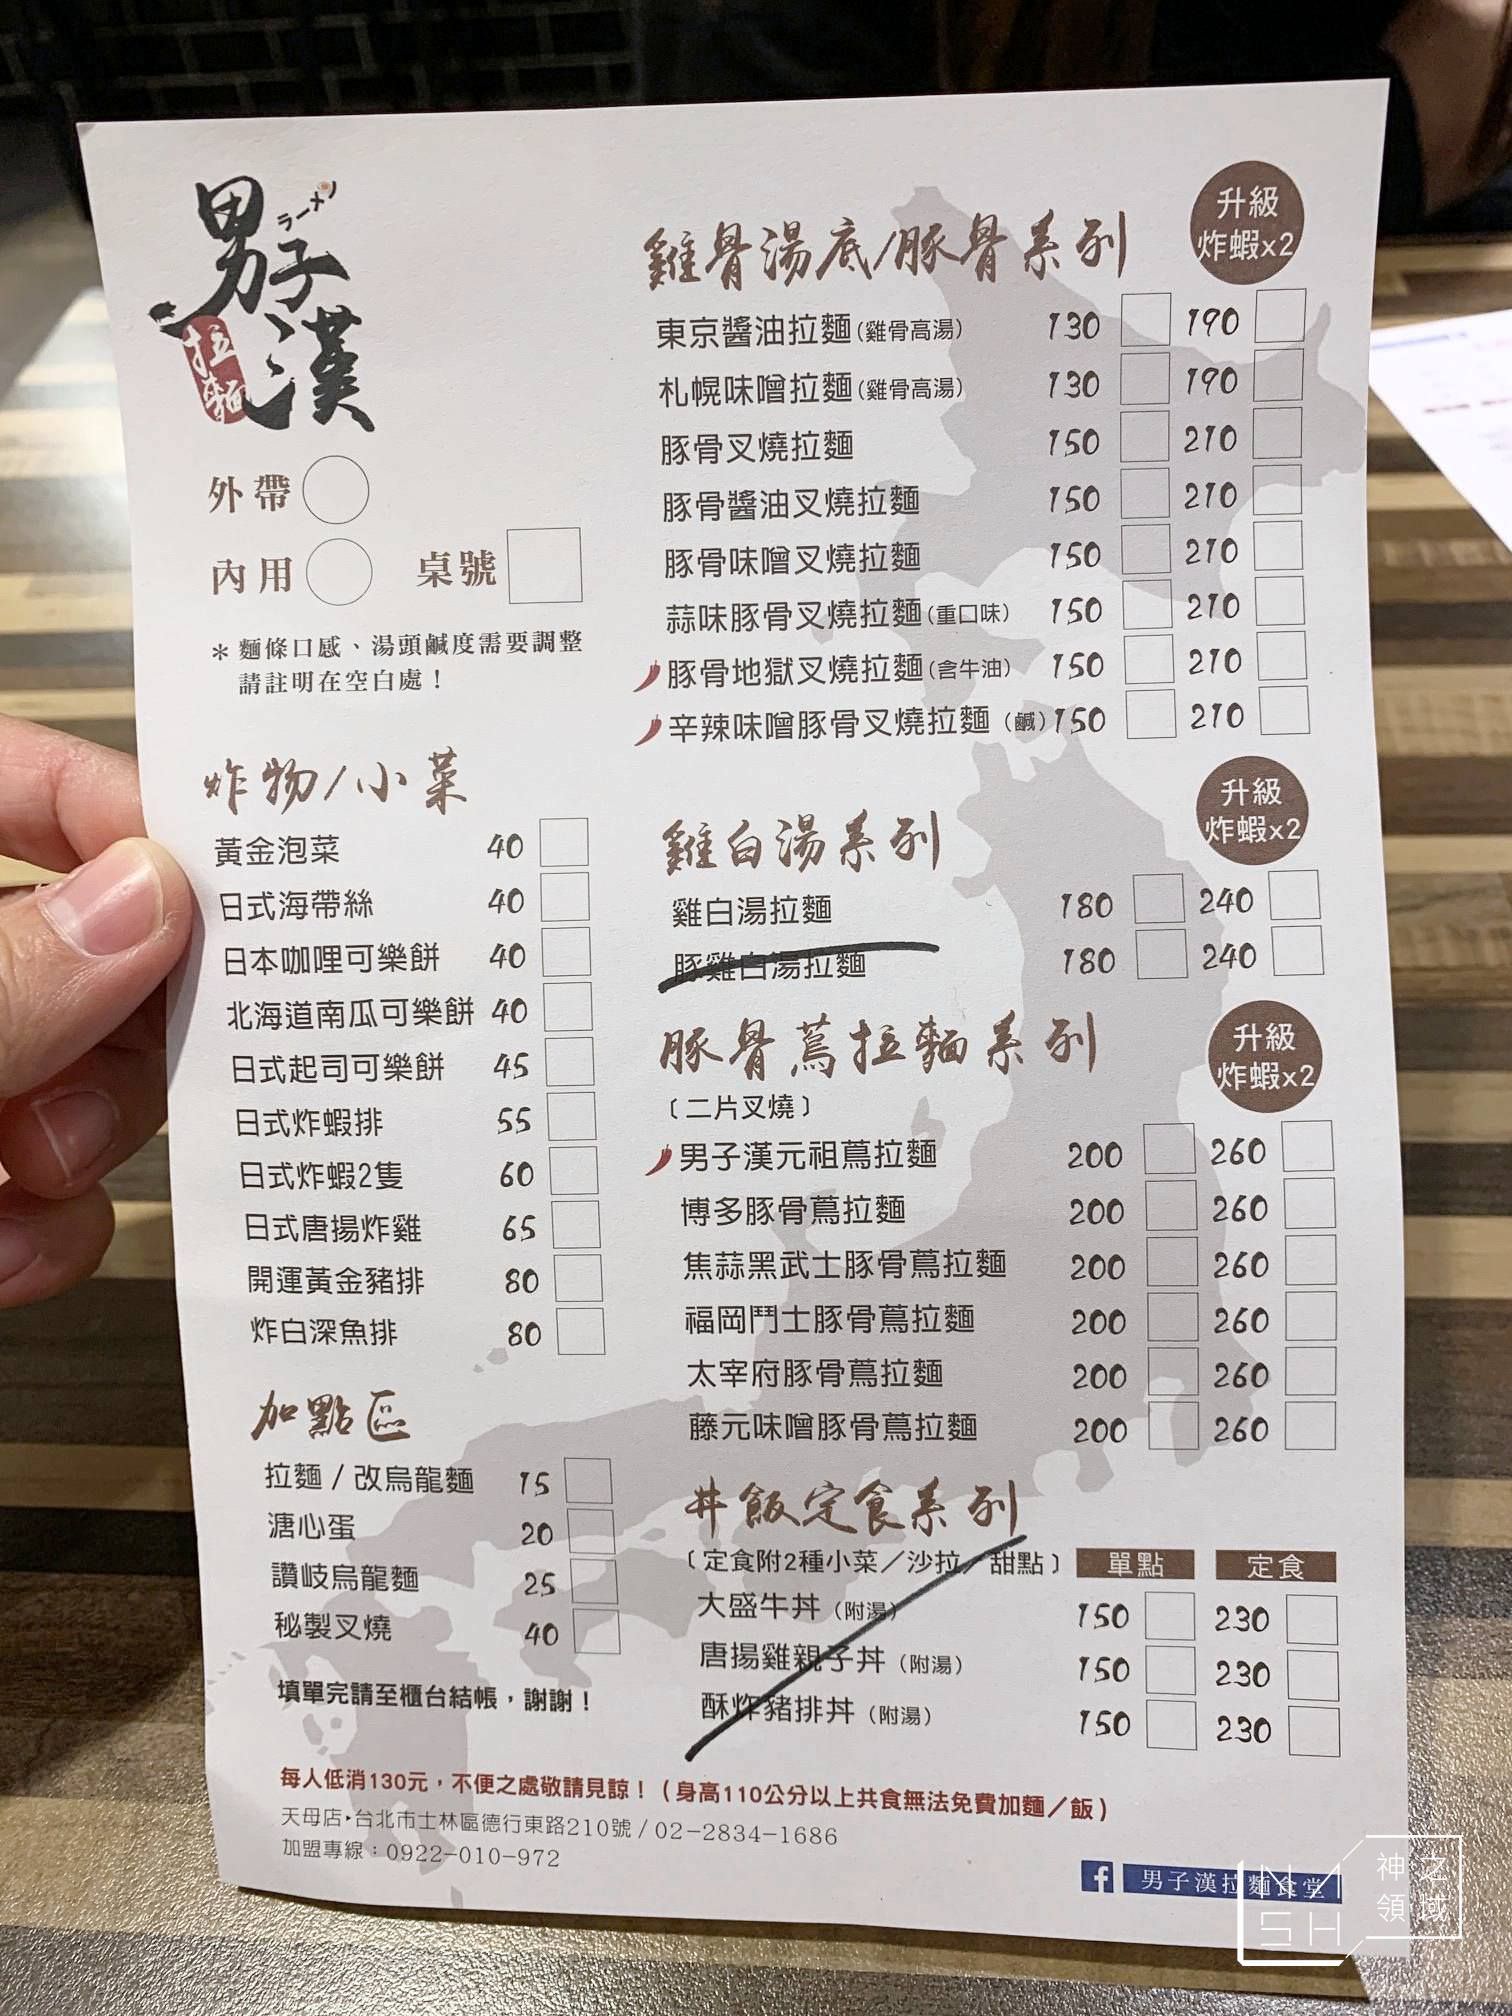 男子漢
ラーメン
拉麵
外帶
內用
桌號
＊麵條口感、湯頭鹹度需要調整
請註明在空白處！
炸物/小菜
黃金泡菜 40
日式海帶絲 40
日本咖哩可樂餅 40
北海道南瓜可樂餅 40
日式起司可樂餅 45
日式炸蝦排 55
日式炸蝦2隻 60
日式唐揚炸雞 65
開運黃金豬排 80
炸白深魚排 80
加點區
拉麵/改烏龍麵 15
溏心蛋 20
讚岐烏龍麵 25
秘製叉燒 40
填單完請至櫃台結帳，謝謝！
雞骨湯底/豚骨系列
升級
炸蝦x2
東京醬油拉麵(雞骨高湯) 130 190
札幌味噌拉麵(雞骨高湯) 130 190
豚骨叉燒拉麵 150 210
豚骨醬油叉燒拉麵 150 210
豚骨味噌叉燒拉麵 150 210
蒜味豚骨叉燒拉麵(重口味) 150 210
豚骨地獄叉燒拉麵(含牛油) 150 210
辛辣味噌豚骨叉燒拉麵（鹹) 150 210
雞白湯系列
升級
炸蝦x2
雞白湯拉麵 180 240
豚雞白湯拉麵 180 240
豚骨蔦拉麵系列
升級
炸蝦x2
〔二片叉燒〕
男子漢元祖蔦拉麵 200 260
博多豚骨蔦拉麵 200 260
焦蒜黑武士豚骨蔦拉麵 200 260
福岡鬥士豚骨蔦拉麵 200 260
太宰府豚骨蔦拉麵 200 260
藤元味噌豚骨蔦拉麵 200 260
丼飯定食系列
〔定食附2種小菜／沙拉／甜點〕 單點 定食
大盛牛丼（附湯） 150 230
唐揚雞親子丼（附湯） 150 230
酥炸豬排丼（附湯） 150 230
每人低消130元，不便之處敬請見諒！（身高110公分以上共食無法免費加麵／飯）
天母店▸台北市士林區德行東路210號/02-2834-1686
加盟專線：0922-010-972
f 男子漢拉麵食堂
NASH
神之
領域